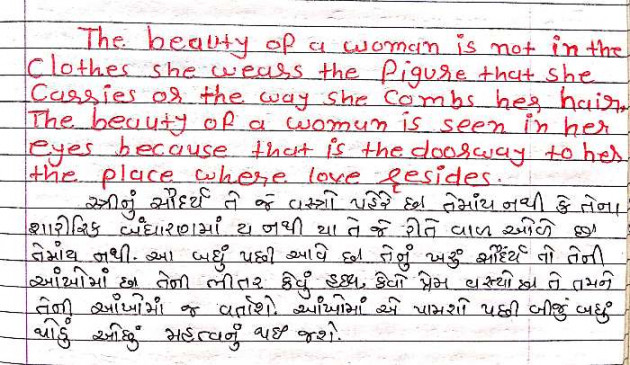 The beauty of a woman is not in the
Clothes she wears the figure that she
Carries or the way she Combs her hair,
The beauty of a woman is seen in her
eyes because that is the doorway to her
the place where love resides.
સ્ત્રીનું સૌંદર્ય તે જે વસ્ત્રો પહેરે છે તેમાંય નથી કે તેના
શારીરિક બંધારણમાં ય નથી યા તે જે રીતે વાળ ઓળે છે
તેમાંય નથી. આ બધું પછી આવે છે તેનું ખરૂં સૌંદર્ય તો તેની
આંખોમાં છે તેની ભીતર કેવું હૃદય, કેવો પ્રેમ વસ્યો છે તે તમને
તેની આંખોમાં જ વર્તાશે. આંખોમાં એ પામશો પછી બીજું બધું
થોડું ઓછું મહત્વનું થઈ જશે.